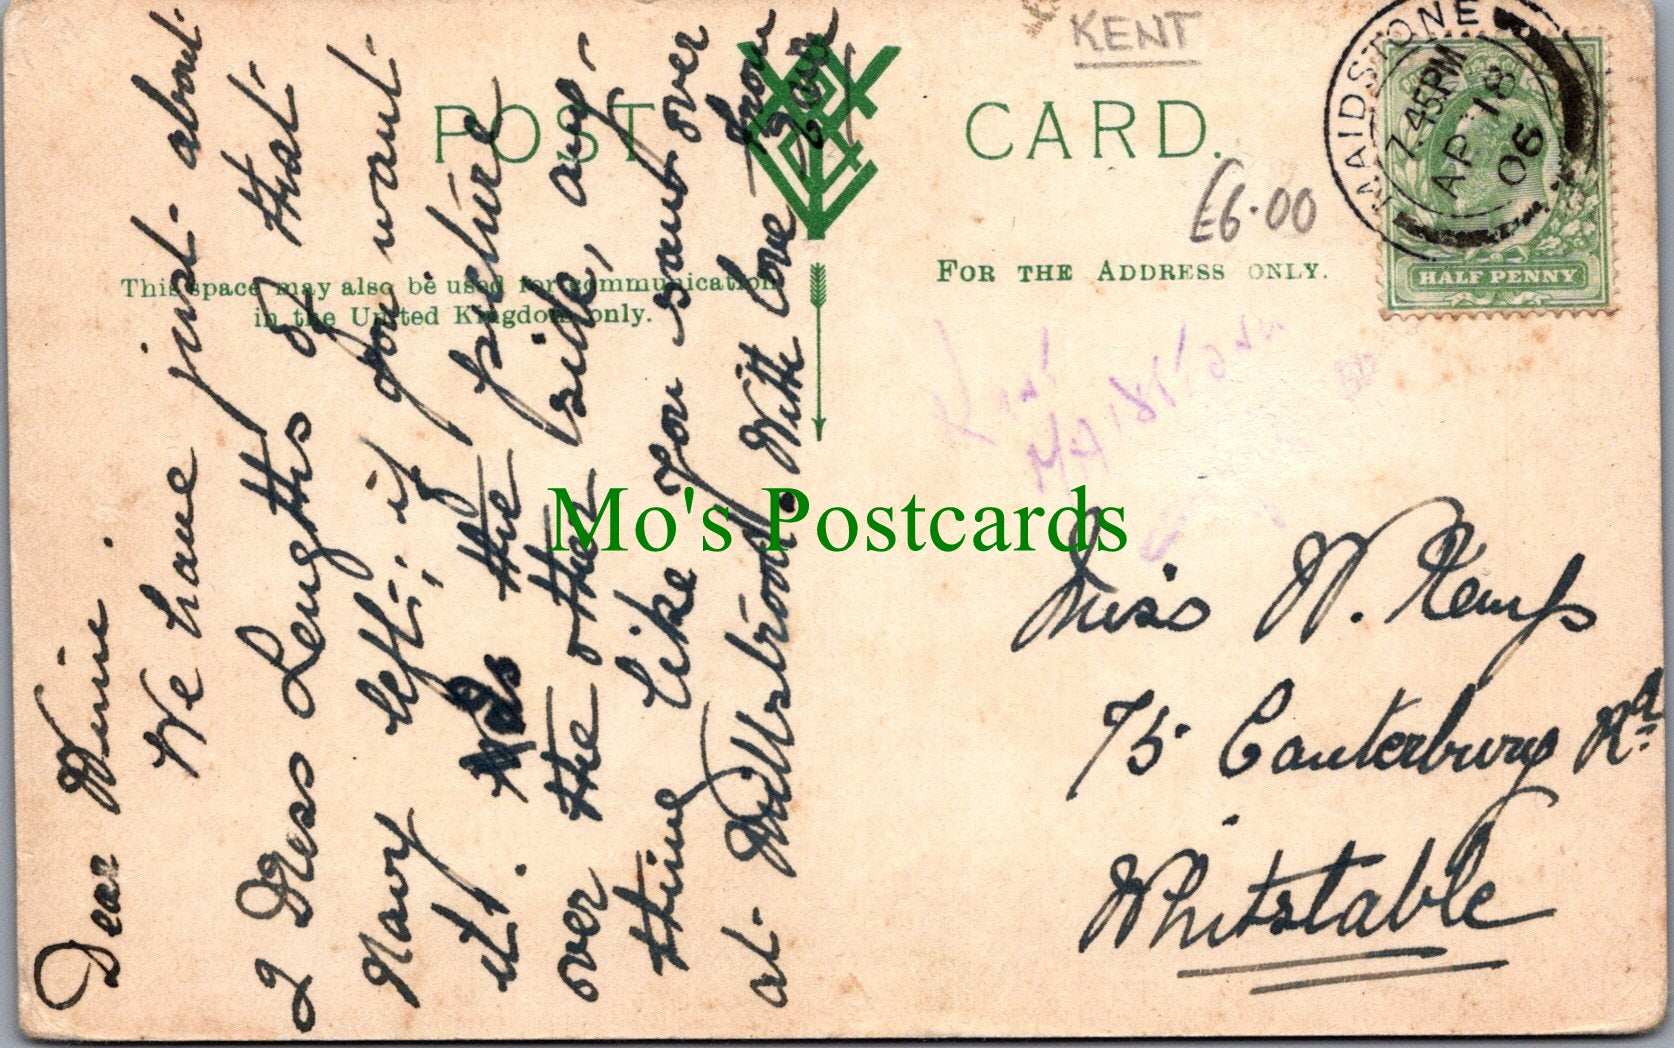 KENT
POST CARD.
MAIDSTONE
7.45PM
AP 18
06
HALF PENNY
£6.00
This space may also be used for communication
in the United Kingdom only.
FOR THE ADDRESS ONLY.
Dear Winnie.
We have just about
2 Dress Lengths of that
Navy left; if you want
it. is the picture
over the other side, any-
thing like you saunt over
at Millsbrook. With love from
Mo's Postcards
Miss W. Kemp
75 Canterbury Rd
Whitstable